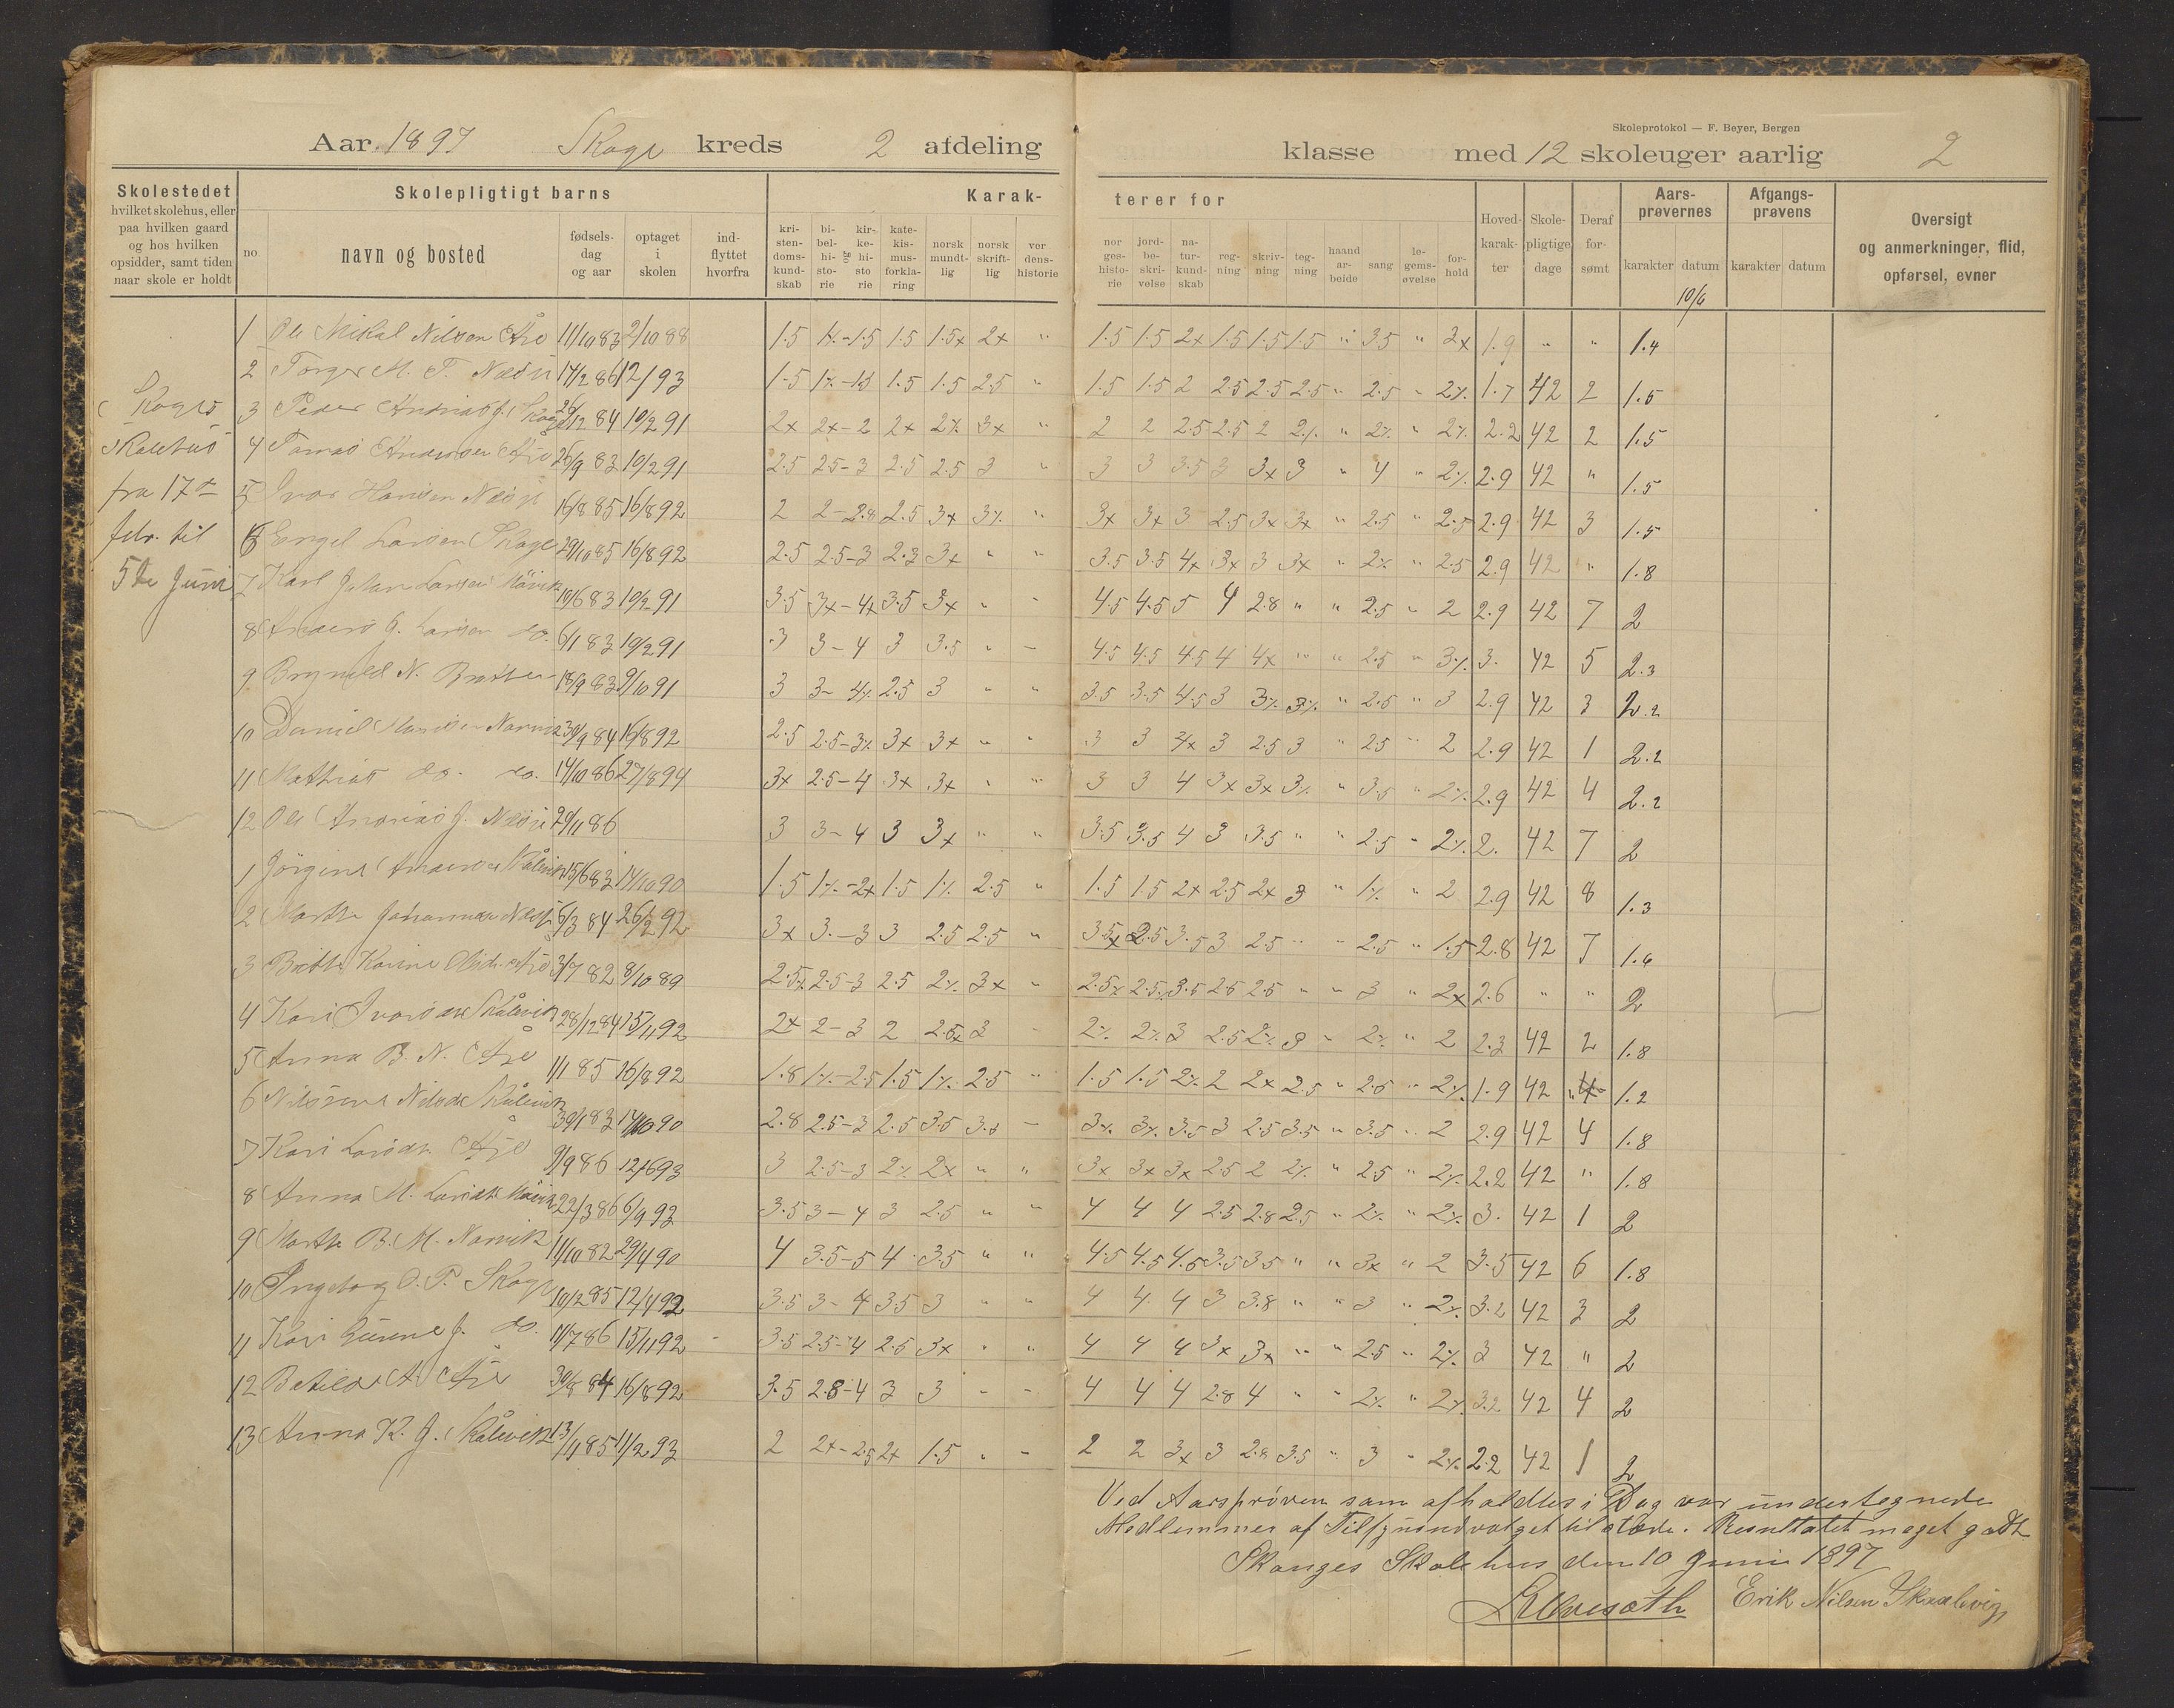 Skoleprotokol — F. Beyer, Bergen
Aar 1897 Skage kreds 2 afdeling klasse med 12 skoleuger aarlig 2
Skolestedet
hvilket skolehus, eller
paa hvilken gaard
og hos hvilken
opsidder, samt tiden
naar skole er holdt
Skolepligtigt barns
no
navn og bosted
fødsels-
dag
og aar
optaget
i
skolen
ind-
flyttet
hvorfra
Karak- terer for
kri-
sten-
doms-
kund-
skab
bi-
bel-
hi-
sto-
rie
og
kir-
ke-
hi-
sto
rie
kate-
kis-
mus-
forkla-
ring
norsk
mundt-
lig
norsk
skrift-
lig
ver
dens-
historie
nor
ges-
histo-
rie
jord-
be-
skri-
velse
na-
tur-
kund-
skab
reg-
ning
skriv-
ning
teg-
ning
haand
ar-
beide
sang
le-
gems-
øvelse
for-
hold
Hoved-
karak-
ter
Skole-
pligtige
dage
Deraf
for-
sømt
Aars-
prøvernes
karakter datum
Afgangs-
prøvens
karakter datum
Oversigt
og anmerkninger, flid,
opførsel, evner
10/6
Skolehus
fra 17de
febr. til
5te Juni
1 Ole Mikal Nilsen 11/10 83 2/10 88 1.5 1.5 1.5 1.5x 2x " 1.5 1.5 2x 1.5 1.5 1.5 " 3.5 " 2x 1.9 " " 1.4
2 Torger M. T. 17/2 86 12/93 1.5 1.5 1.5 2.5 " 1.5 1.5 2 2.5 2.5 2.5 " 2.5 " 2% 1.7 42 2 1.5
3 Peder Andreas J. Skage 26/12 84 10/2 91 2x 2x-2 2x 2% 3x " 2 2 2.5 2.5 2 2% " 2% " 2% 2.2 42 2 1.5
4 Tomas Andersen 26/9 83 10/2 91 2.5 2.5-3 2.5 2.5 3 " 3 3 3.5 3 3x 3 " 4 " 2% 2.9 42 " 1.5
5 Ivar Hansen 16/8 85 16/8 92 2 2-2.8 2.5 3x 3% " 3x 3x 3 2.5 3x 3x " 2.5 " 2.5 2.9 42 3 1.5
6 Engel Larsen Skage 29/10 85 16/8 92 2.5 2.5-3 2.3 3x " " 3.5 3.5 4x 3x 3 3x " 2% " 2.5 2.9 42 " 1.8
7 Karl Johan Larsen 10/6 83 10/2 91 3.5 3x-4x 3.5 3x " " 4.5 4.5 5 4 2.8 " " 2.5 " 2 2.9 42 7 2
8 Anders G. Larsen do. 6/1 83 10/2 91 3 3-4 3 3.5 " - 4.5 4.5 4.5 4 4x " " 2.5 " 3% 3. 42 5 2.3
9 Brynild N. 18/9 83 9/10 91 3 3-4% 2.5 3 " " 3.5 3.5 4.5 3 3% 3% " 2.5 " 3 2.9 42 3 2.2
10 Daniel 30/9 84 16/8 92 2.5 2.5-3% 3x 3x " " 3 3 3x 3 2.5 3 " 2.5 " 2 2.9 42 1 2.2
11 Mathias do. do. 14/10 86 27/8 94 3x 2.5-4 3x 3x " " 3 3 4 3x 3x 3% " 3.5 " 2% 2.9 42 4 2.2
12 Ole Andreas J. 29/11 86 3 3-4 3 3x " " 3.5 3.5 4 3 3.5 " " 2.5 " 2% 2. 42 7 2
1 Jørgine 15/6 83 14/10 90 1.5 1%-2x 1.5 1% 2.5 " 1.5 1.5 2x 2.5 2x 3 " 1% " 2 2.9 42 8 1.3
2 Marthe 6/3 84 26/2 92 3x 3.-3 3 2.5 2.5 " 3.5x 2.5 3.5 3 2.5 " " 2.5 " 1.5 2.8 42 7 1.6
3 Karine 3/7 82 8/10 89 2.5x 2.5-3 2.5 2% 3x " 2.5x 2.5 3.5 2.5 2.5 " " 3 " 2x 2.6 " " 2
4 Kari Skålevik 28/12 84 15/11 92 2x 2-3 2 2.5x 3 2% 2% 3 2.5 2% 3 " 2% " 2 2.3 42 2 1.8
5 Anna B. N. 1/1 85 16/8 92 1.8 1%-2.5 1.5 1% 2.5 " 1.5 1.5 2% 2 2x 2.5 " 2.5 " 2% 1.9 42 " 1.2
6 Nilsdtr Skålevik 30/1 83 14/10 90 2.8 2.5-3 2.5 3.5 3.5 - 3% 3% 3.5 3 2.5 3.5 " 3.5 " 2 2.9 42 4 1.8
7 Kari Larsdtr. 9/9 86 12/6 93 3 2.5-3 2% 2x " " 3x 3x 3x 2.5 2 2% " 2.5 " 2% 2.2 42 " 1.8
8 Anna M. Larsdtr 22/3 86 6/9 93 3.5 3-4 3 2.5 " " 4 4 4 2.5 2.8 2.5 " 2% " 2% 3. 42 1 2
9 Marthe B. M. 11/10 82 29/4 90 4 3.5-5 4 3.5 " " 4.5 4.5 4.5 3.5 3.5 " " 3x " 2 3.5 42 6 1.8
10 Ingebog O. P. Skage 10/2 85 12/4 92 3.5 3-4 3.5 3 " " 4 4 4 3 3.8 " " 3 " 2% 3.2 42 3 2
11 Kari Gunne J. do. 11/7 86 15/11 92 3.5 2.5-4 2.5 3x " " 4 4 4 3x 3x " " 2.5 " 2% 3 42 " 2
12 Betilde A. 30/8 84 16/8 92 3.5 2.8-4 3 3 " - 4 4 4 2.8 4 " " 2% " 2% 3.2 42 4 2
13 Anna K. J. Skålevik 13/4 85 11/2 93 2 2x-2.5 2x 1.5 " - 2 2 3x 3 2.8 3.5 " 3 " 2% 2.2 42 1 2
Ved Aarsprøven som afholdtes i Dag var undertegnede
Medlemmer af Tilsynsudvalget tilstæde. Resultatet meget godt.
Skauges Skolehus den 10 Juni 1897
Erik Nilsen Skaalevig